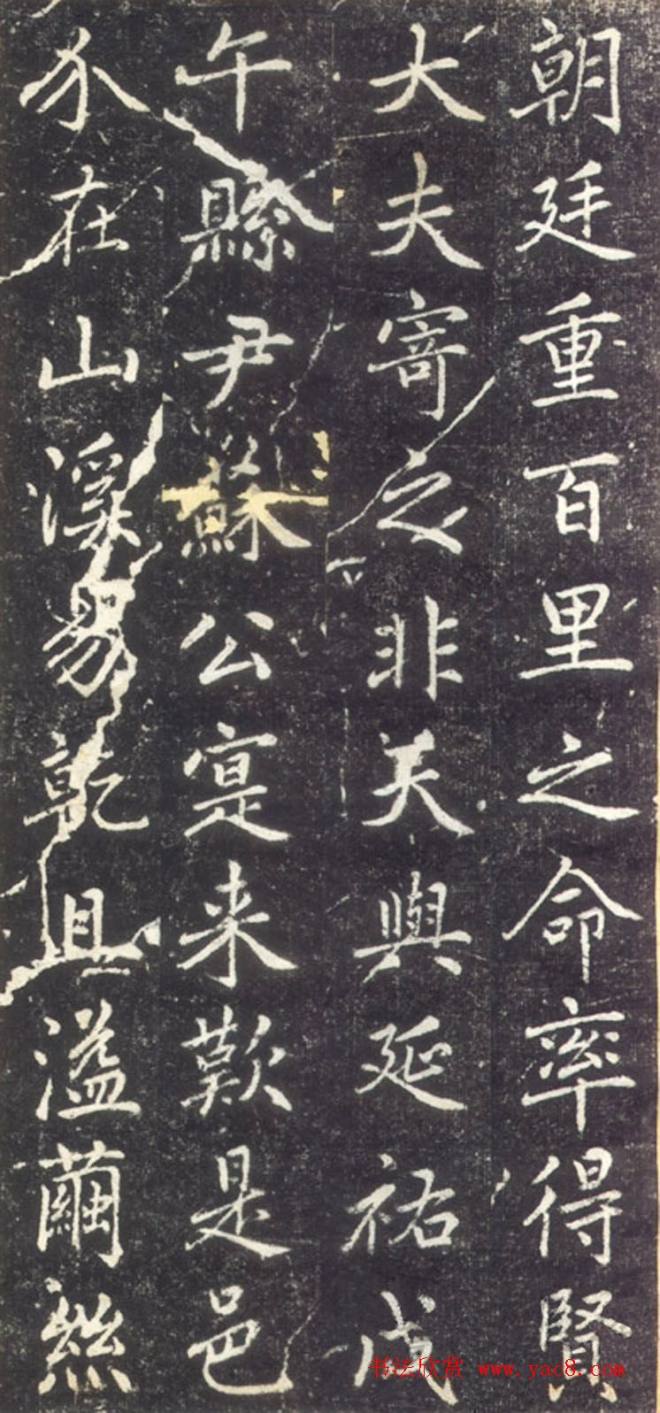 朝廷重百里之命率得賢
大夫寄之非與延祐戊
午縣尹蘇公寔来歎是邑
介在山溪易乾且溢繭絲
书法欣赏 www.yac8.com